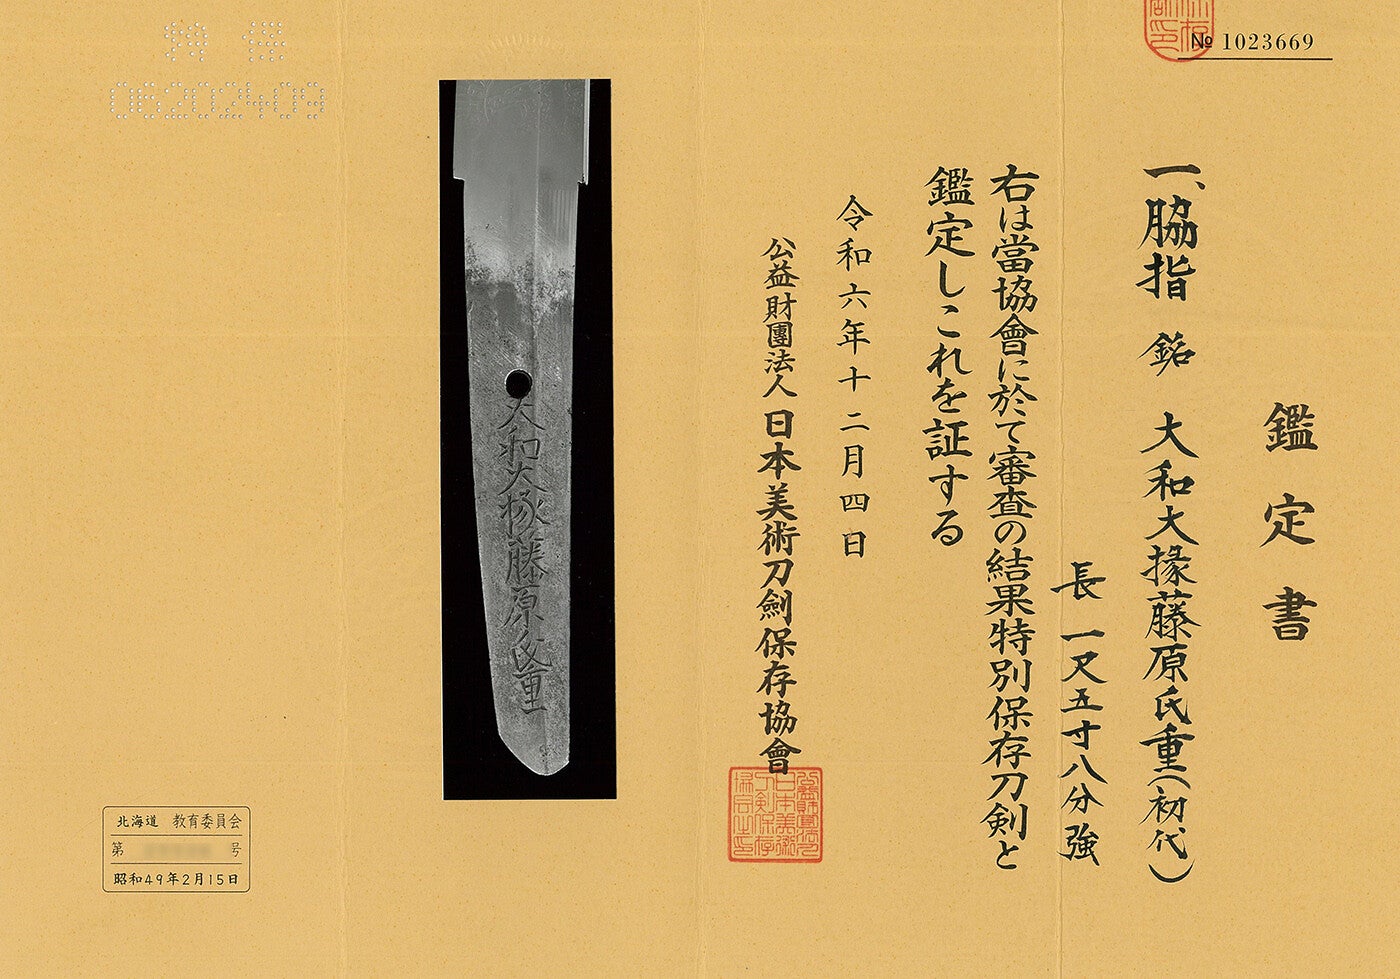 № 1023669
鑑定書
一、脇指 銘 大和大掾藤原氏重(初代)
長 一尺五寸八分強
右は當協會に於て審査の結果特別保存刀剣と
鑑定しこれを証する
令和六年十二月四日
公益財團法人 日本美術刀劍保存協會
大和大掾藤原氏重
06202409
北海道 教育委員会
第 号
昭和49年2月15日